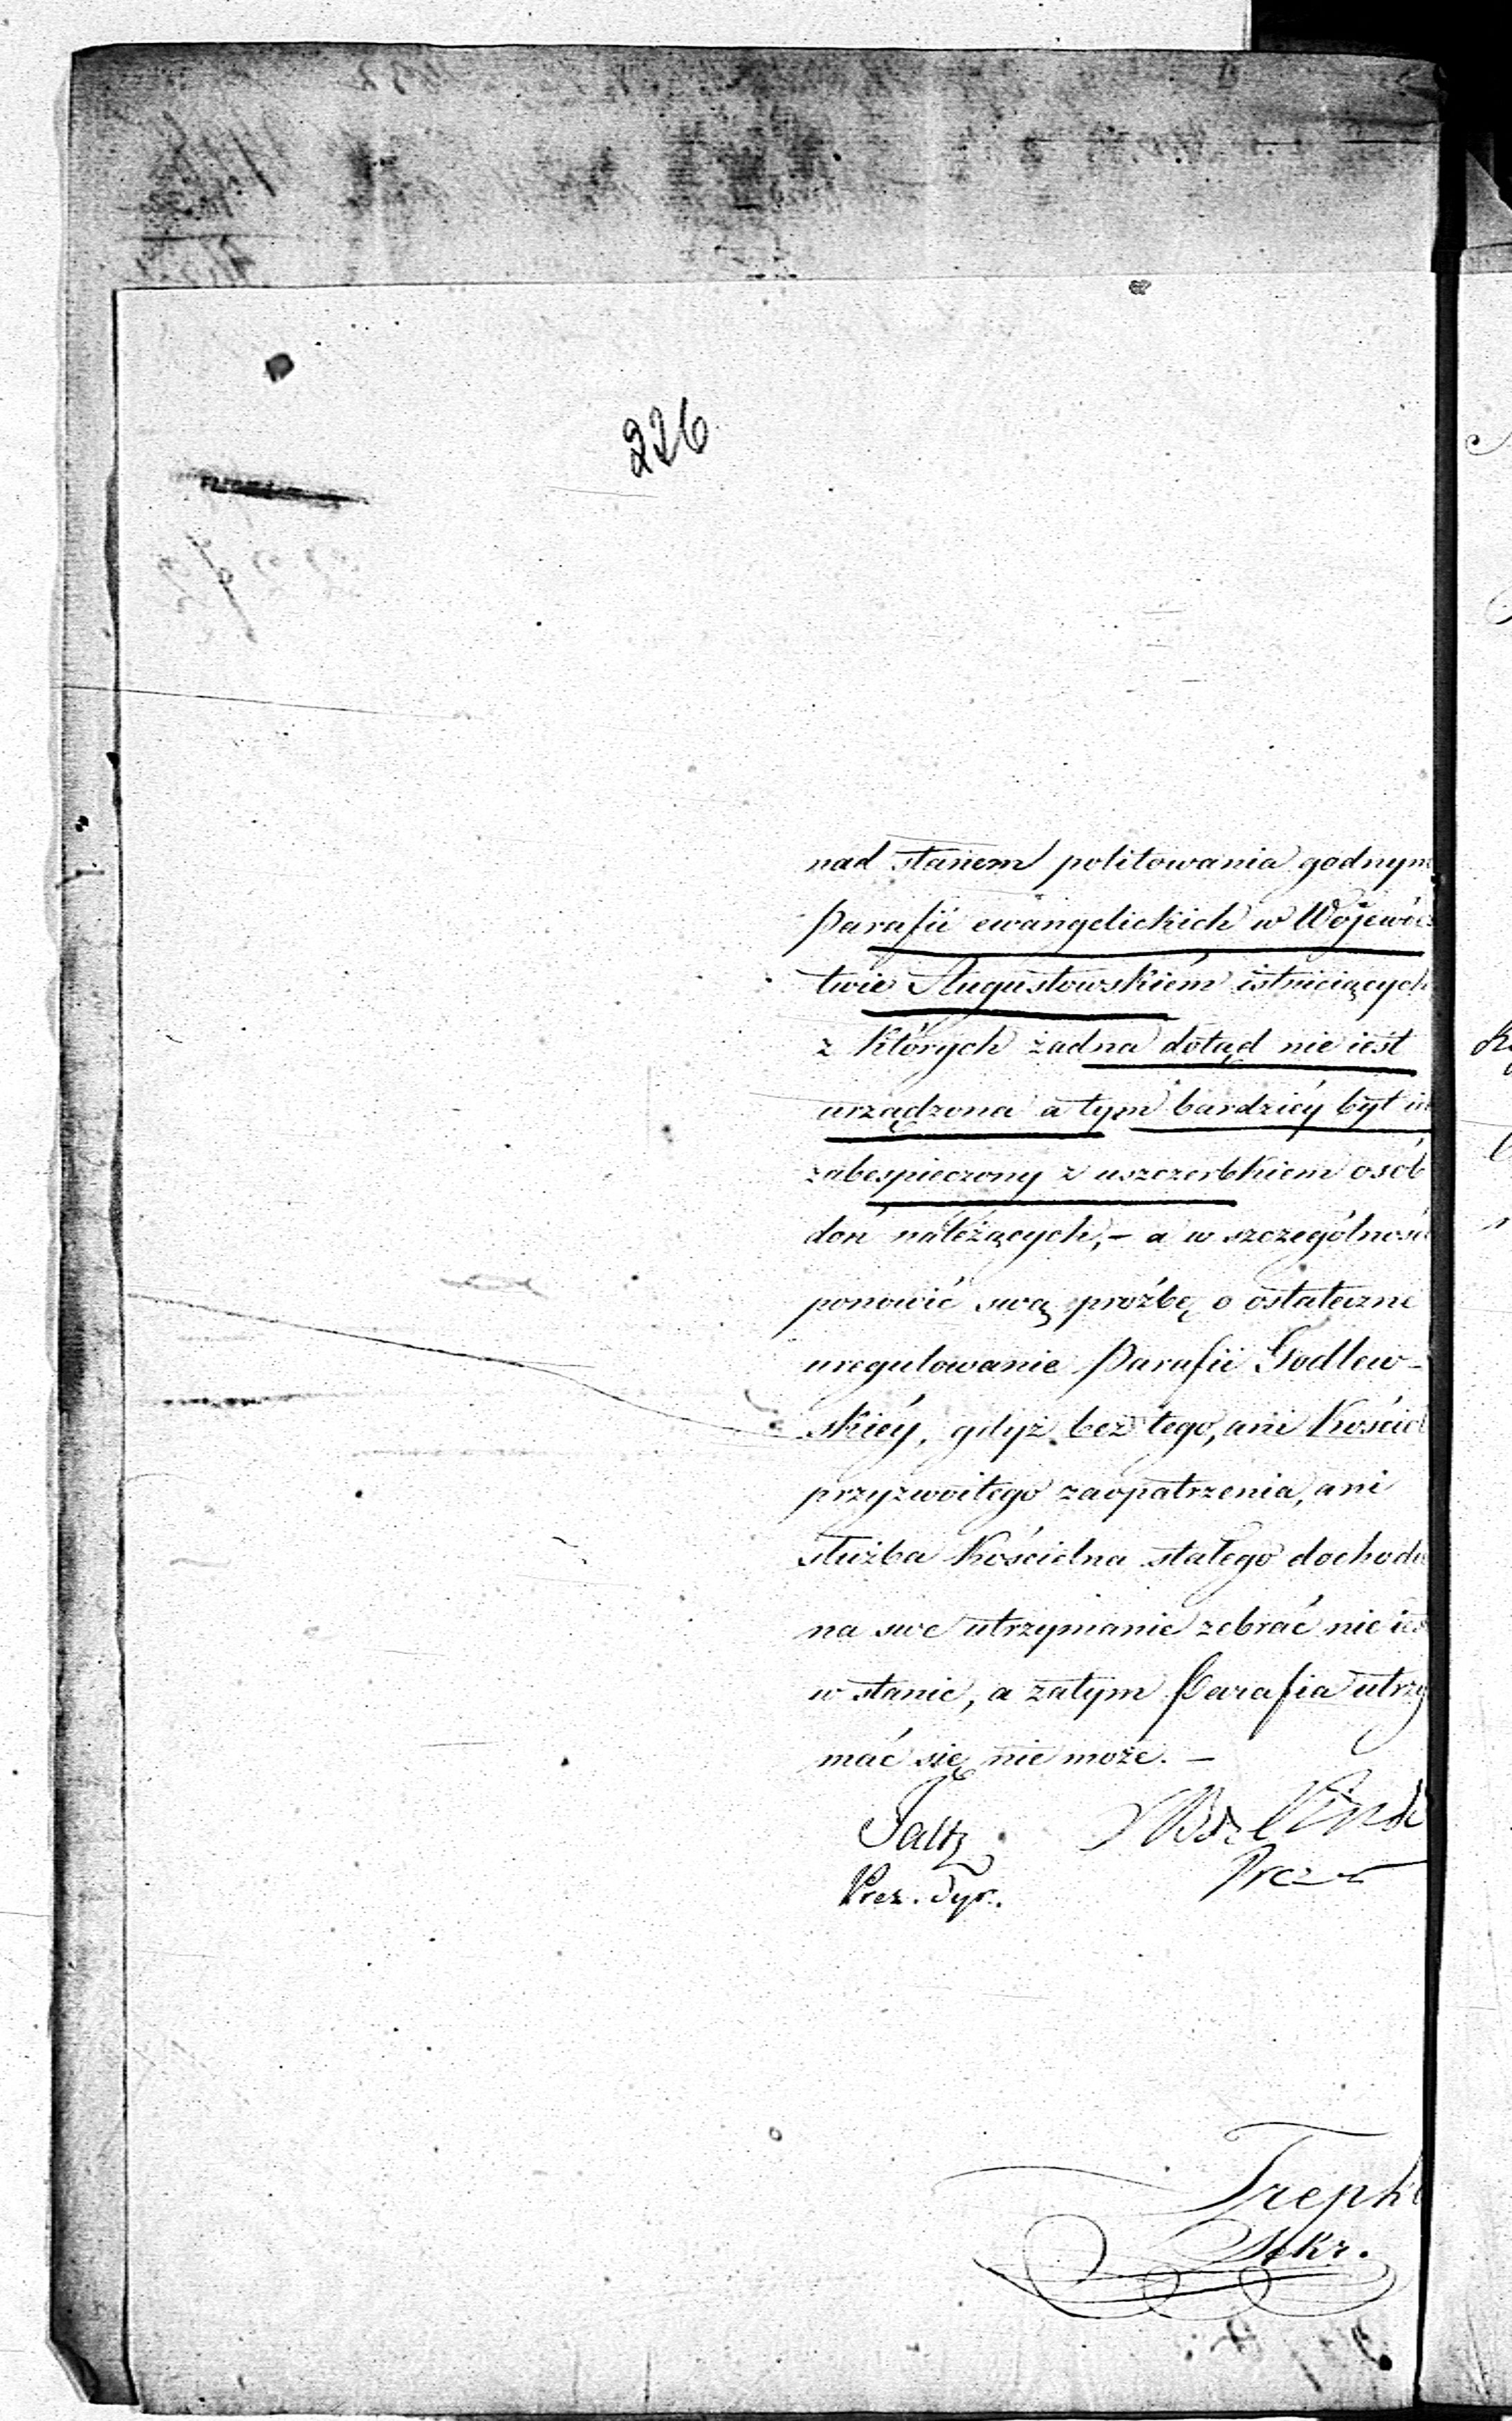 226
nad stanem politowania godnym
Parafii ewangelickich w Wojewódz
twie Augustowskiem istnieiących
z których żadna dotąd nie iest
urządzona a tym bardziéy byt ich
zabespieczony z uszczerbkiem osób
doń należących, – a w szczególnośc
ponowić swą prożbę o ostateczne
uregulowanie Parafii Godlew-
skiéy, gdyż bez tego, ani Kościół
przyzwoitego zaopatrzenia, ani
służba Kościelna stałego dochodu
na swe utrzymanie zebrać nie ies
w stanie, a zatym Parafia utrzy
mać się nie może. –
Prez. Dyr.
Prez
Trepk
Sekr.